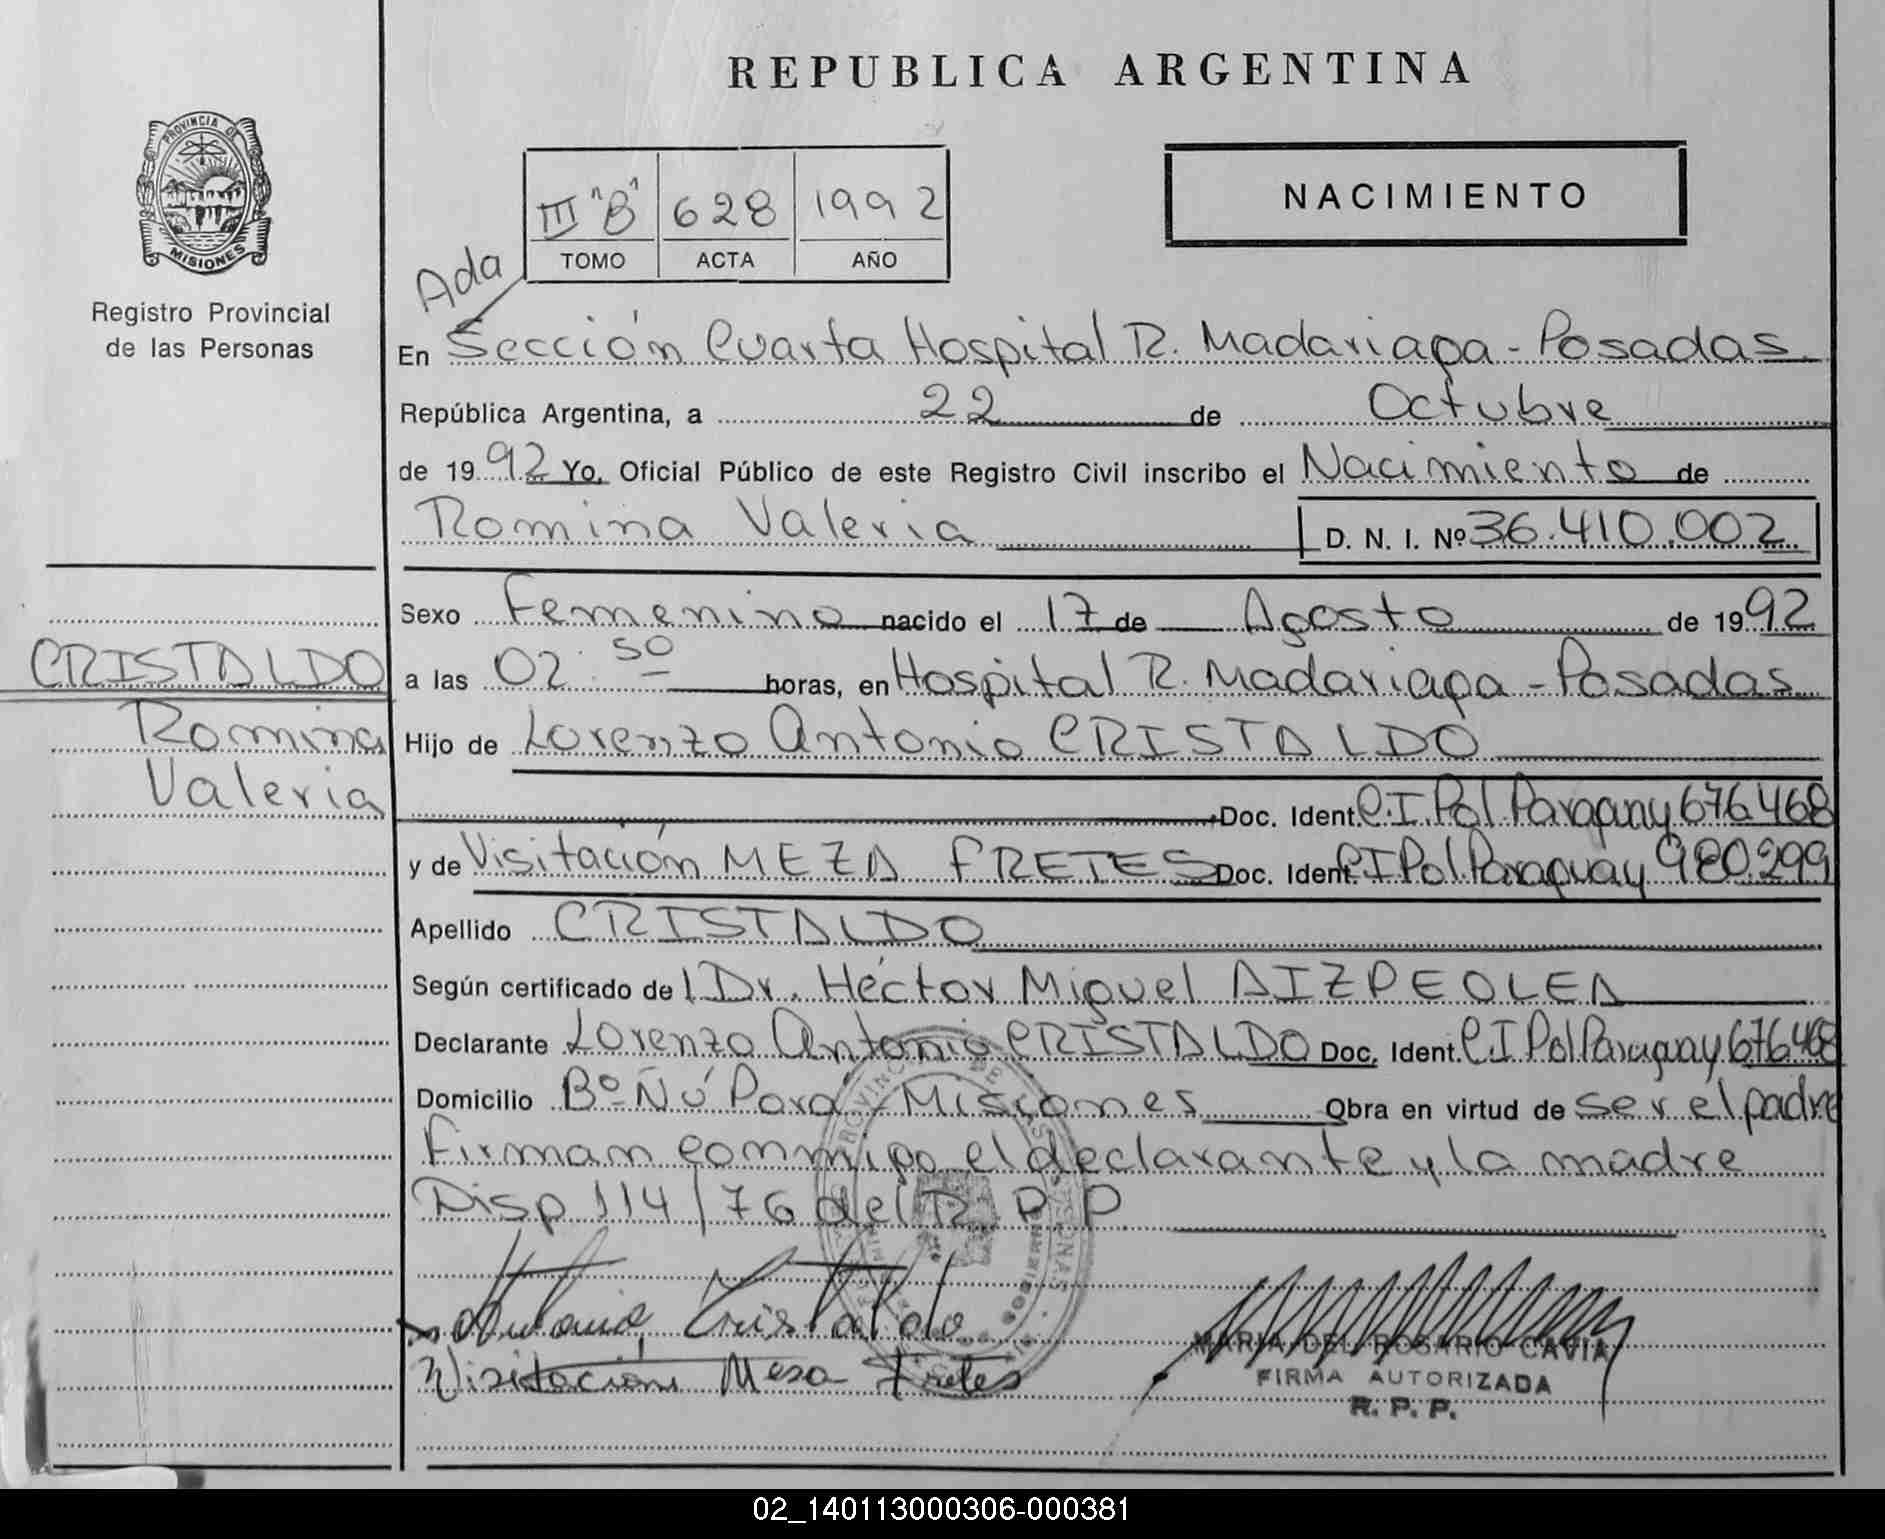 REPUBLICA ARGENTINA
PROVINCIA DE
MISIONES
Registro Provincial
de las Personas
III "B" 628 1992
TOMO ACTA AÑO
NACIMIENTO
Ada
En Sección Cuarta Hospital R. Madariaga - Posadas
República Argentina, a 22 de Octubre
de 1992 Yo, Oficial Público de este Registro Civil inscribo el Nacimiento de
Romina Valeria D. N. I. Nº 36.410.002
Sexo Femenino nacido el 17 de Agosto de 1992
CRISTALDO
Romina
Valeria
a las 02:50 horas, en Hospital R. Madariaga - Posadas
Hijo de Lorenzo Antonio CRISTALDO
Doc. Ident. C.I. Pol Paraguay 676.468
y de Visitación MEZA FRETES Doc. Ident. C I Pol Paraguay 980.299
Apellido CRISTALDO
Según certificado del Dr. Héctor Miguel AIZPEOLEA
Declarante Lorenzo Antonio CRISTALDO Doc. Ident. C I Pol Paraguay 676468
Domicilio Bº Ñú Porá - Misiones Obra en virtud de ser el padre
Firman conmigo el declarante y la madre
Disp 114/76 del R P P
Antonio Cristaldo
Visitación Mesa Fretes
MARIA DEL ROSARIO CAVIA
FIRMA AUTORIZADA
R. P. P.
02_140113000306-000381